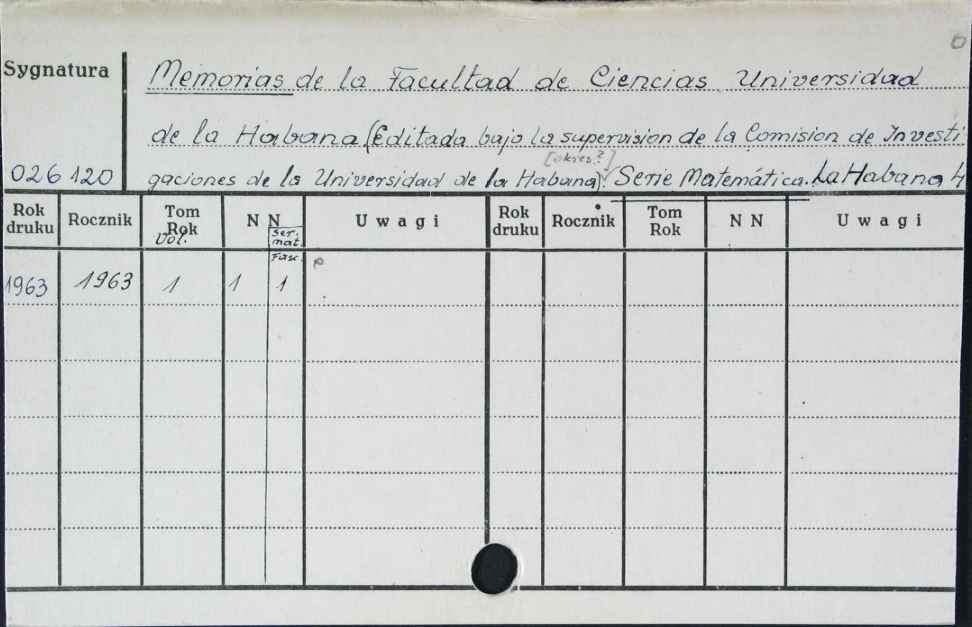 Sygnatura
Memorias de la Facultad de Ciencias Universidad
de la Habana (Editada bajo la supervision de la Comision de Investi
[okres?]
026120 gaciones de la Universidad de la Habana). Serie Matemática. La Habana 4
Rok druku Rocznik Tom Rok N N U w a g i Rok druku Rocznik Tom Rok N N U w a g i
Vol. Ser. mat.
Fasc. p
1963 1963 1 1 1